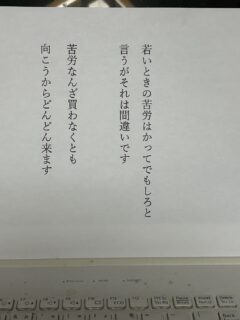 若いときの苦労はかってでもしろと
言うがそれは間違いです
苦労なんざ買わなくとも
向こうからどんどん来ます